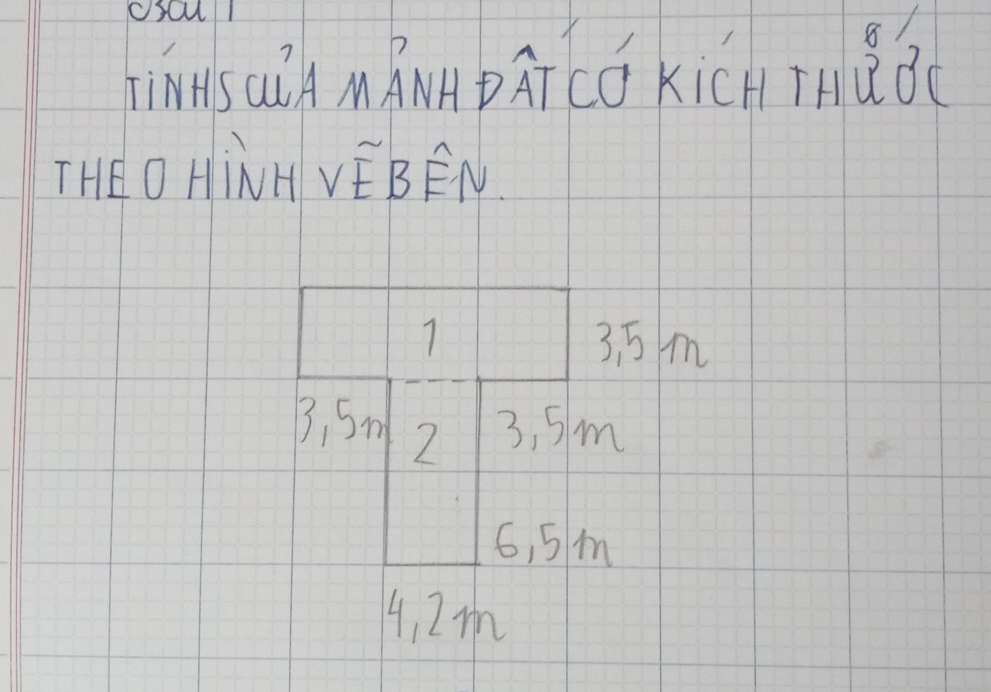 TÍNH S CỦA MẢNH ĐẤT CÓ KÍCH THƯỚC
THEO HÌNH VẼ BÊN.
1
3,5 m
3,5m
2
3,5m
6,5m
4,2m